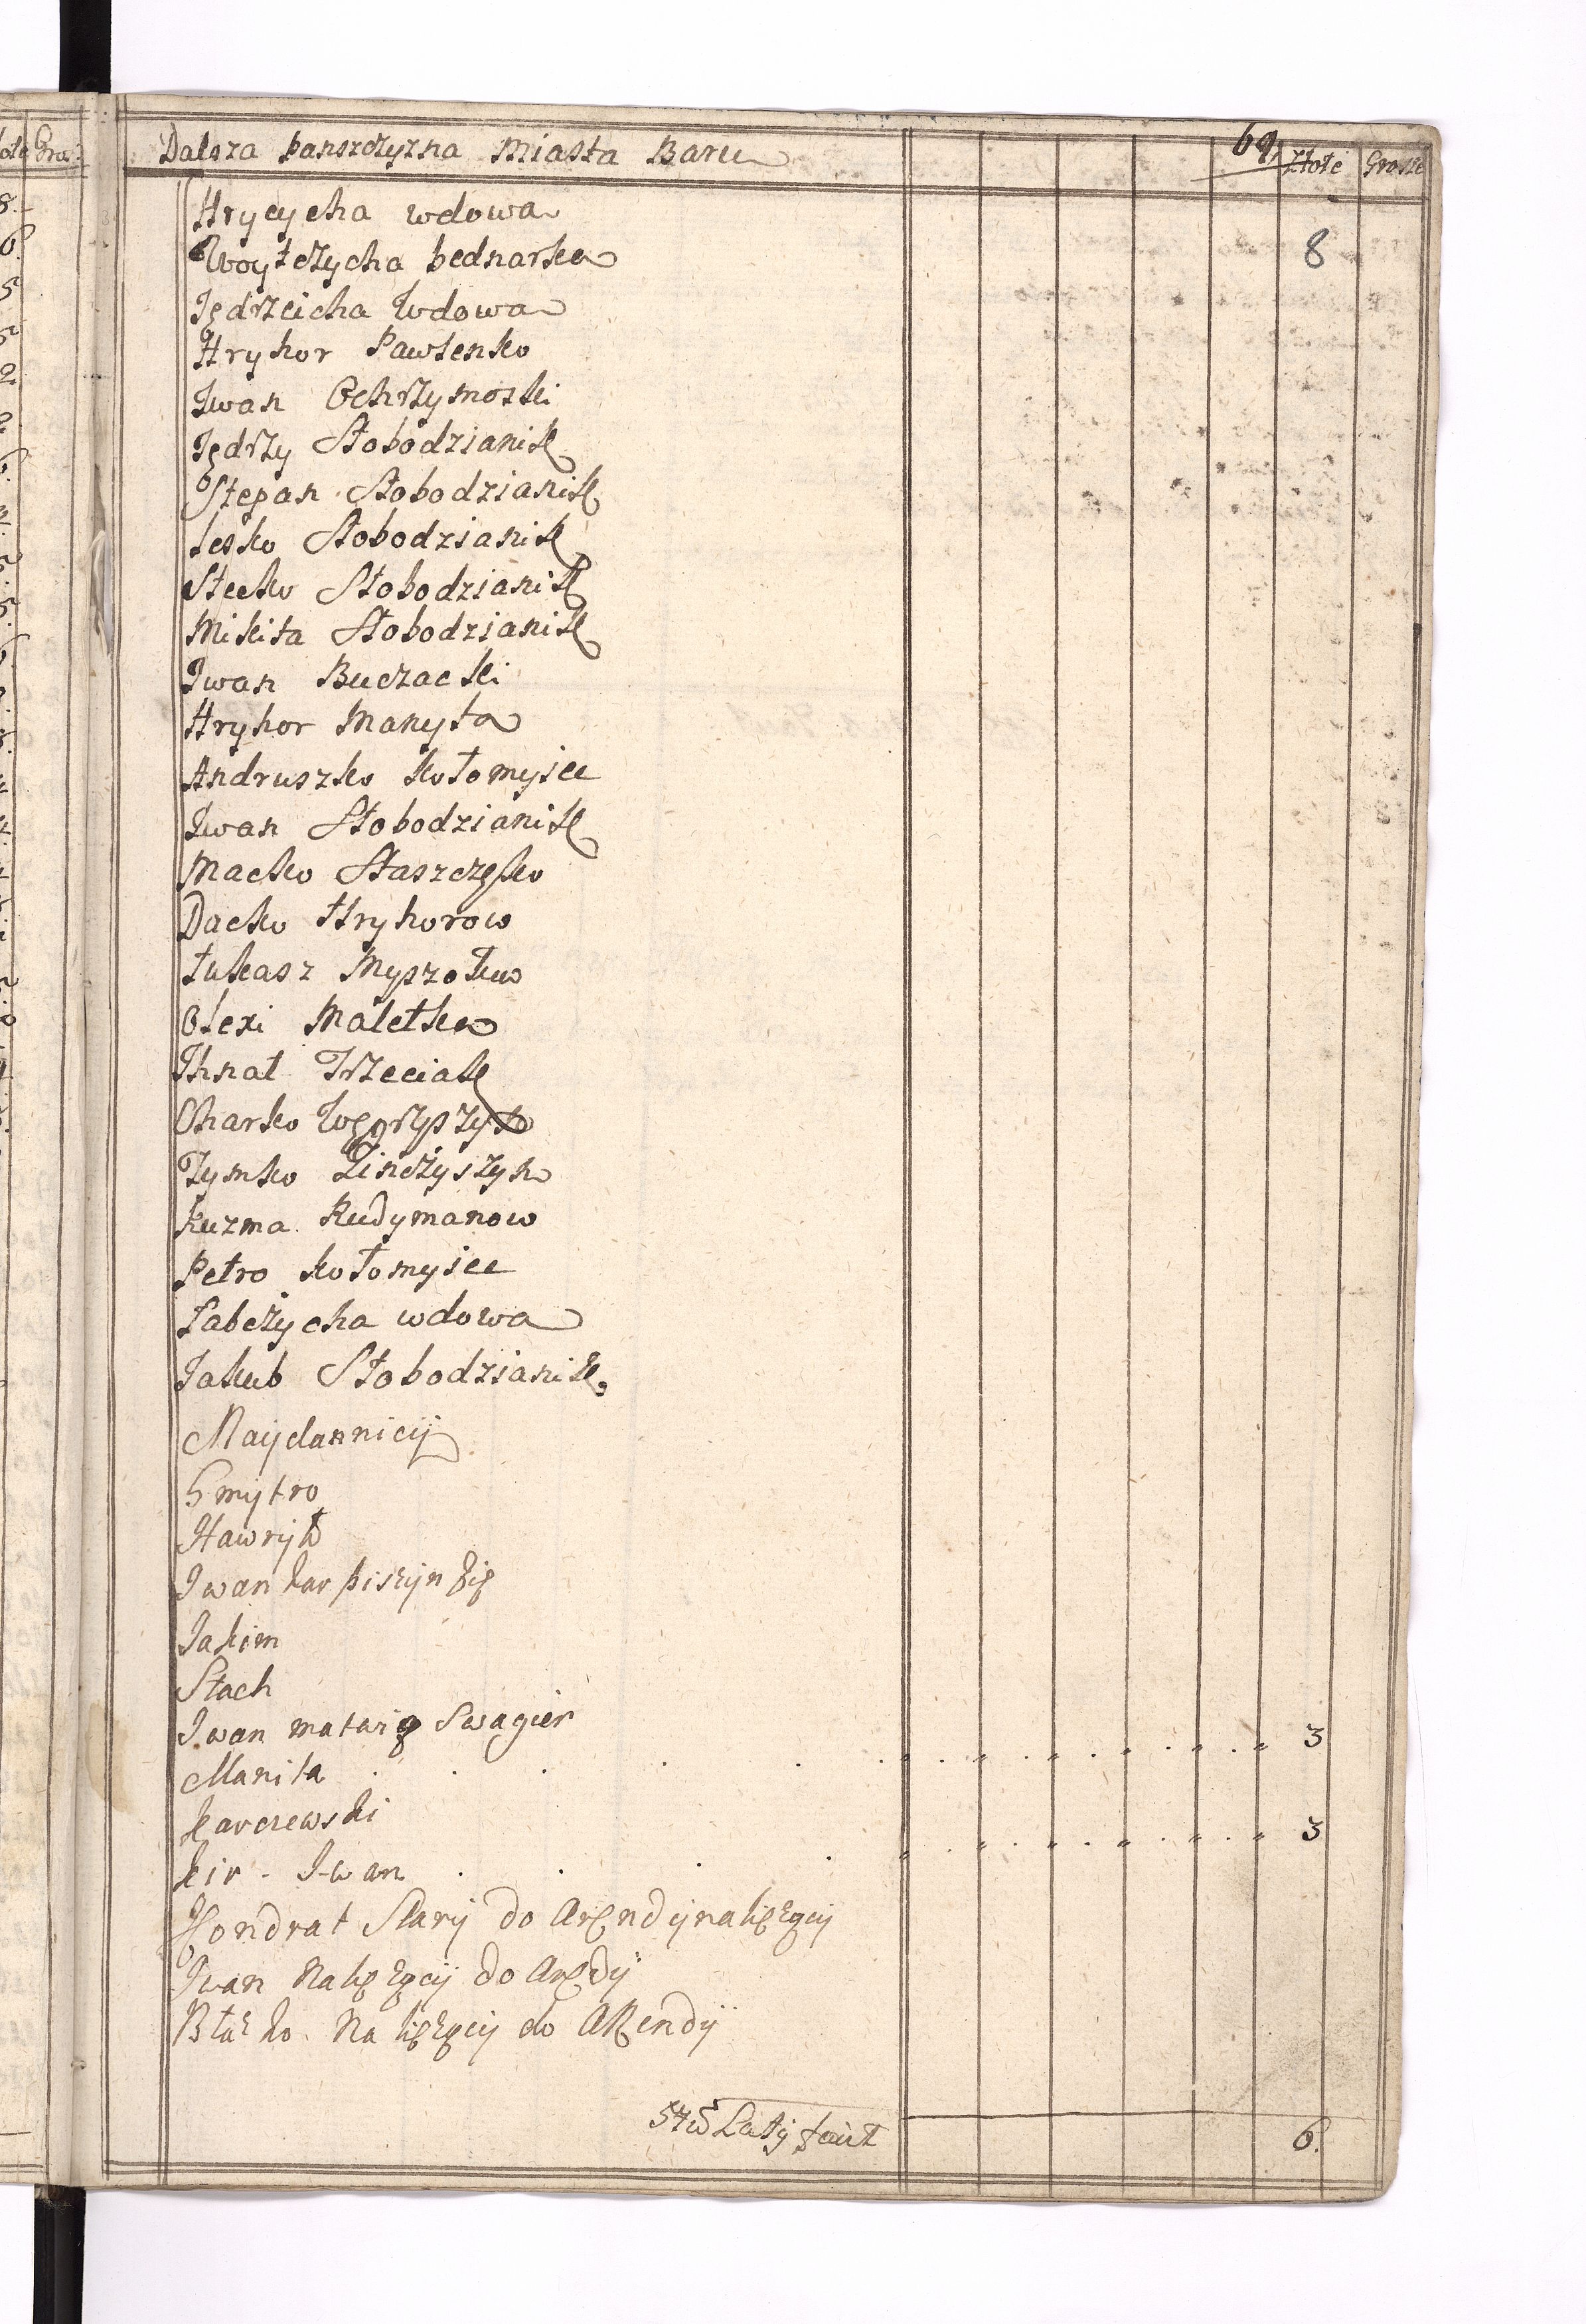 Dalsza panszczyzna Miasta Baru 69, Złote Grosze
Hrycycha wdowa
Woytczycha bednarka 8
Jędrzeicha Wdowa
Hryhor Pawlenko
Iwan Ochrzymoski
Jędrzy Słobodzianik
Stepan Słobodzianik
Lesko Słobodzianik
Stecko Słobodzianik
Mikita Słobodzianik
Iwan Buczacki
Hryhor Manyta
Andruszko Kołomyiec
Iwan Słobodzianik
Macko Staszczęsko
Dacko Hryhorow
Łukasz Myszołow
Olexi Maletka
Ihnat Trzeciak
Charko Węgrzyszyn
Tymko Zinczyszyn
Kuzma Rudymanow
Petro Kołomyiec
Babczycha wdowa
Jakub Słobodzianik.
Maydannicy
Hawryło
Iwan Karpiszyn Zię
Jakim
Stach
Iwan matwię Swagier
Manita 3
Karczewski
Kir - Iwan 3
Kondrat Stary do Arendy nalężęcy
Iwan Nalężęcy do Arędy
Błażko Nalężęcy do ARendy
Laty facit 6.